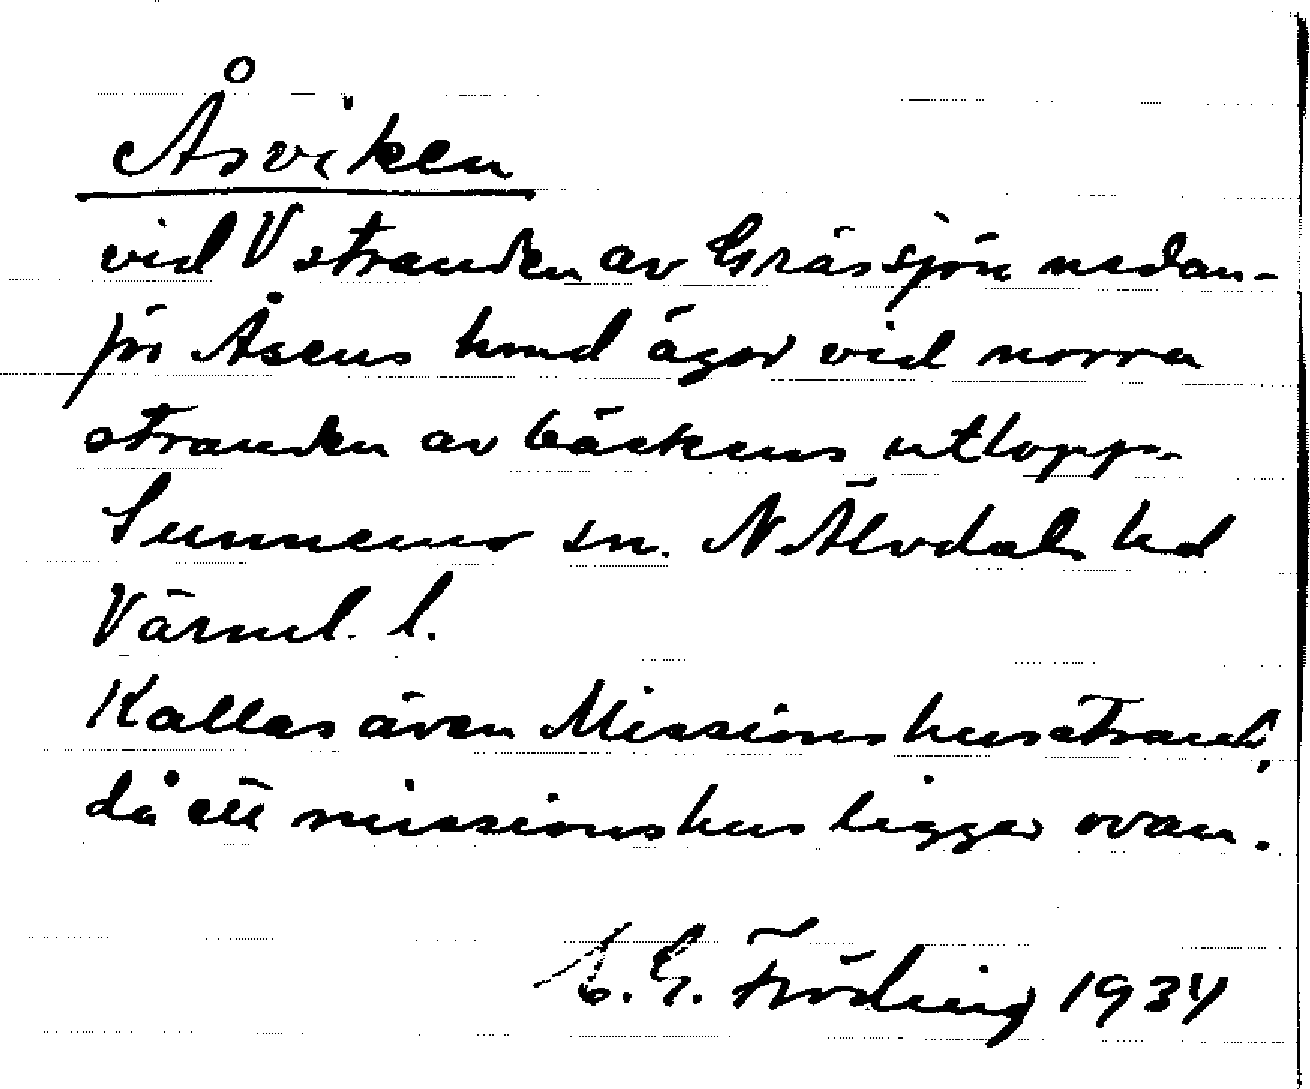 Åsviken
vid V stranden av Grässjön nedan-
för Åsens hmd ägor vid norra
stranden av bäckens utlopp.
Sunnemo sn. N. Älvdals hd
Värml. l.
Kallas även Missionshusstrand,
då ett missionshus ligger ovan.
G. Fröding 1934